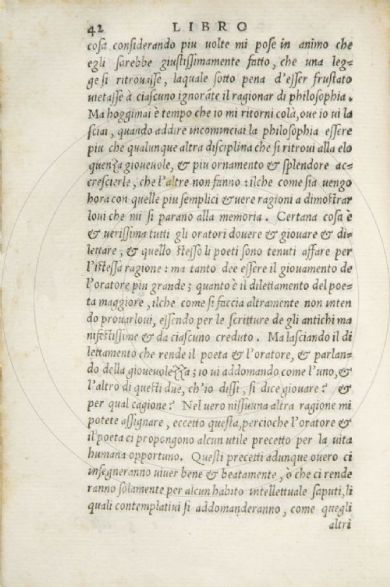 42 LIBRO
cosa considerando piu uolte mi pose in animo che
egli sarebbe giustissimamente fatto, che una leg=
ge si ritrouasse, laquale sotto pena d'esser frustato
uietasse à ciascuno ignorãte il ragionar di philosophia.
Ma hoggimai è tempo che io mi ritorni colà, oue io ui la
sciai, quando addire incominciai la philosophia essere
piu che qualunque altra disciplina che si ritroui alla elo
quenza gioueuole, & piu ornamento & splendore ac=
crescierle, che l'altre non fanno: ilche come sia uengo
hora con quelle piu semplici & uere ragioni a dimostrar
loui che mi si parano alla memoria. Certana cosa è
& uerissima tutti gli oratori douere & giouare & di=
lettare, & quello stesso li poeti sono tenuti affare per
l'istessa ragione: ma tanto dee essere il giouamento de
l'oratore piu grande; quanto è il dilettamento del poe=
ta maggiore, ilche come si faccia altramente non inten
do prouarloui, essendo per le scritture de gli antichi ma
nifestissime & da ciascuno creduto. Ma lasciando il di
lettamento che rende il poeta & l'oratore, & parlan=
do della gioueuolezza; io ui addomando come l'uno, &
l'altro di questi due, ch'io dissi, si dice giouare? &
per qual cagione? Nel uero nissuna altra ragione mi
potete assignare, eccetto questa, percioche l'oratore &
il poeta ci propongono alcun utile precetto per la uita
humana opportuno. Questi precetti adunque ouero ci
insegneranno uiuer bene & beatamente, ò che ci rende
ranno solamente per alcun habito intellettuale saputi, li
quali contemplatiui si addomanderanno, come quegli
altri